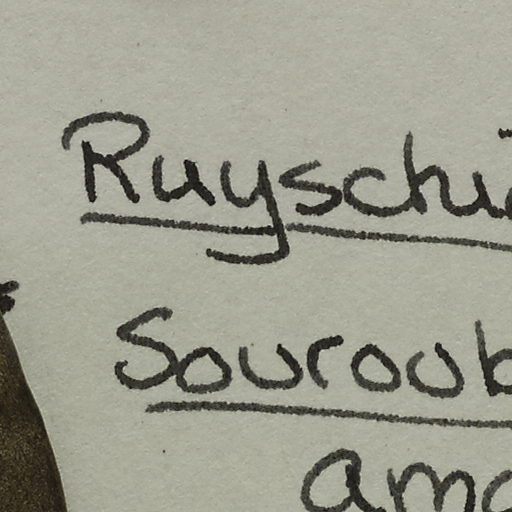 Ruyschi
Souroub
ama